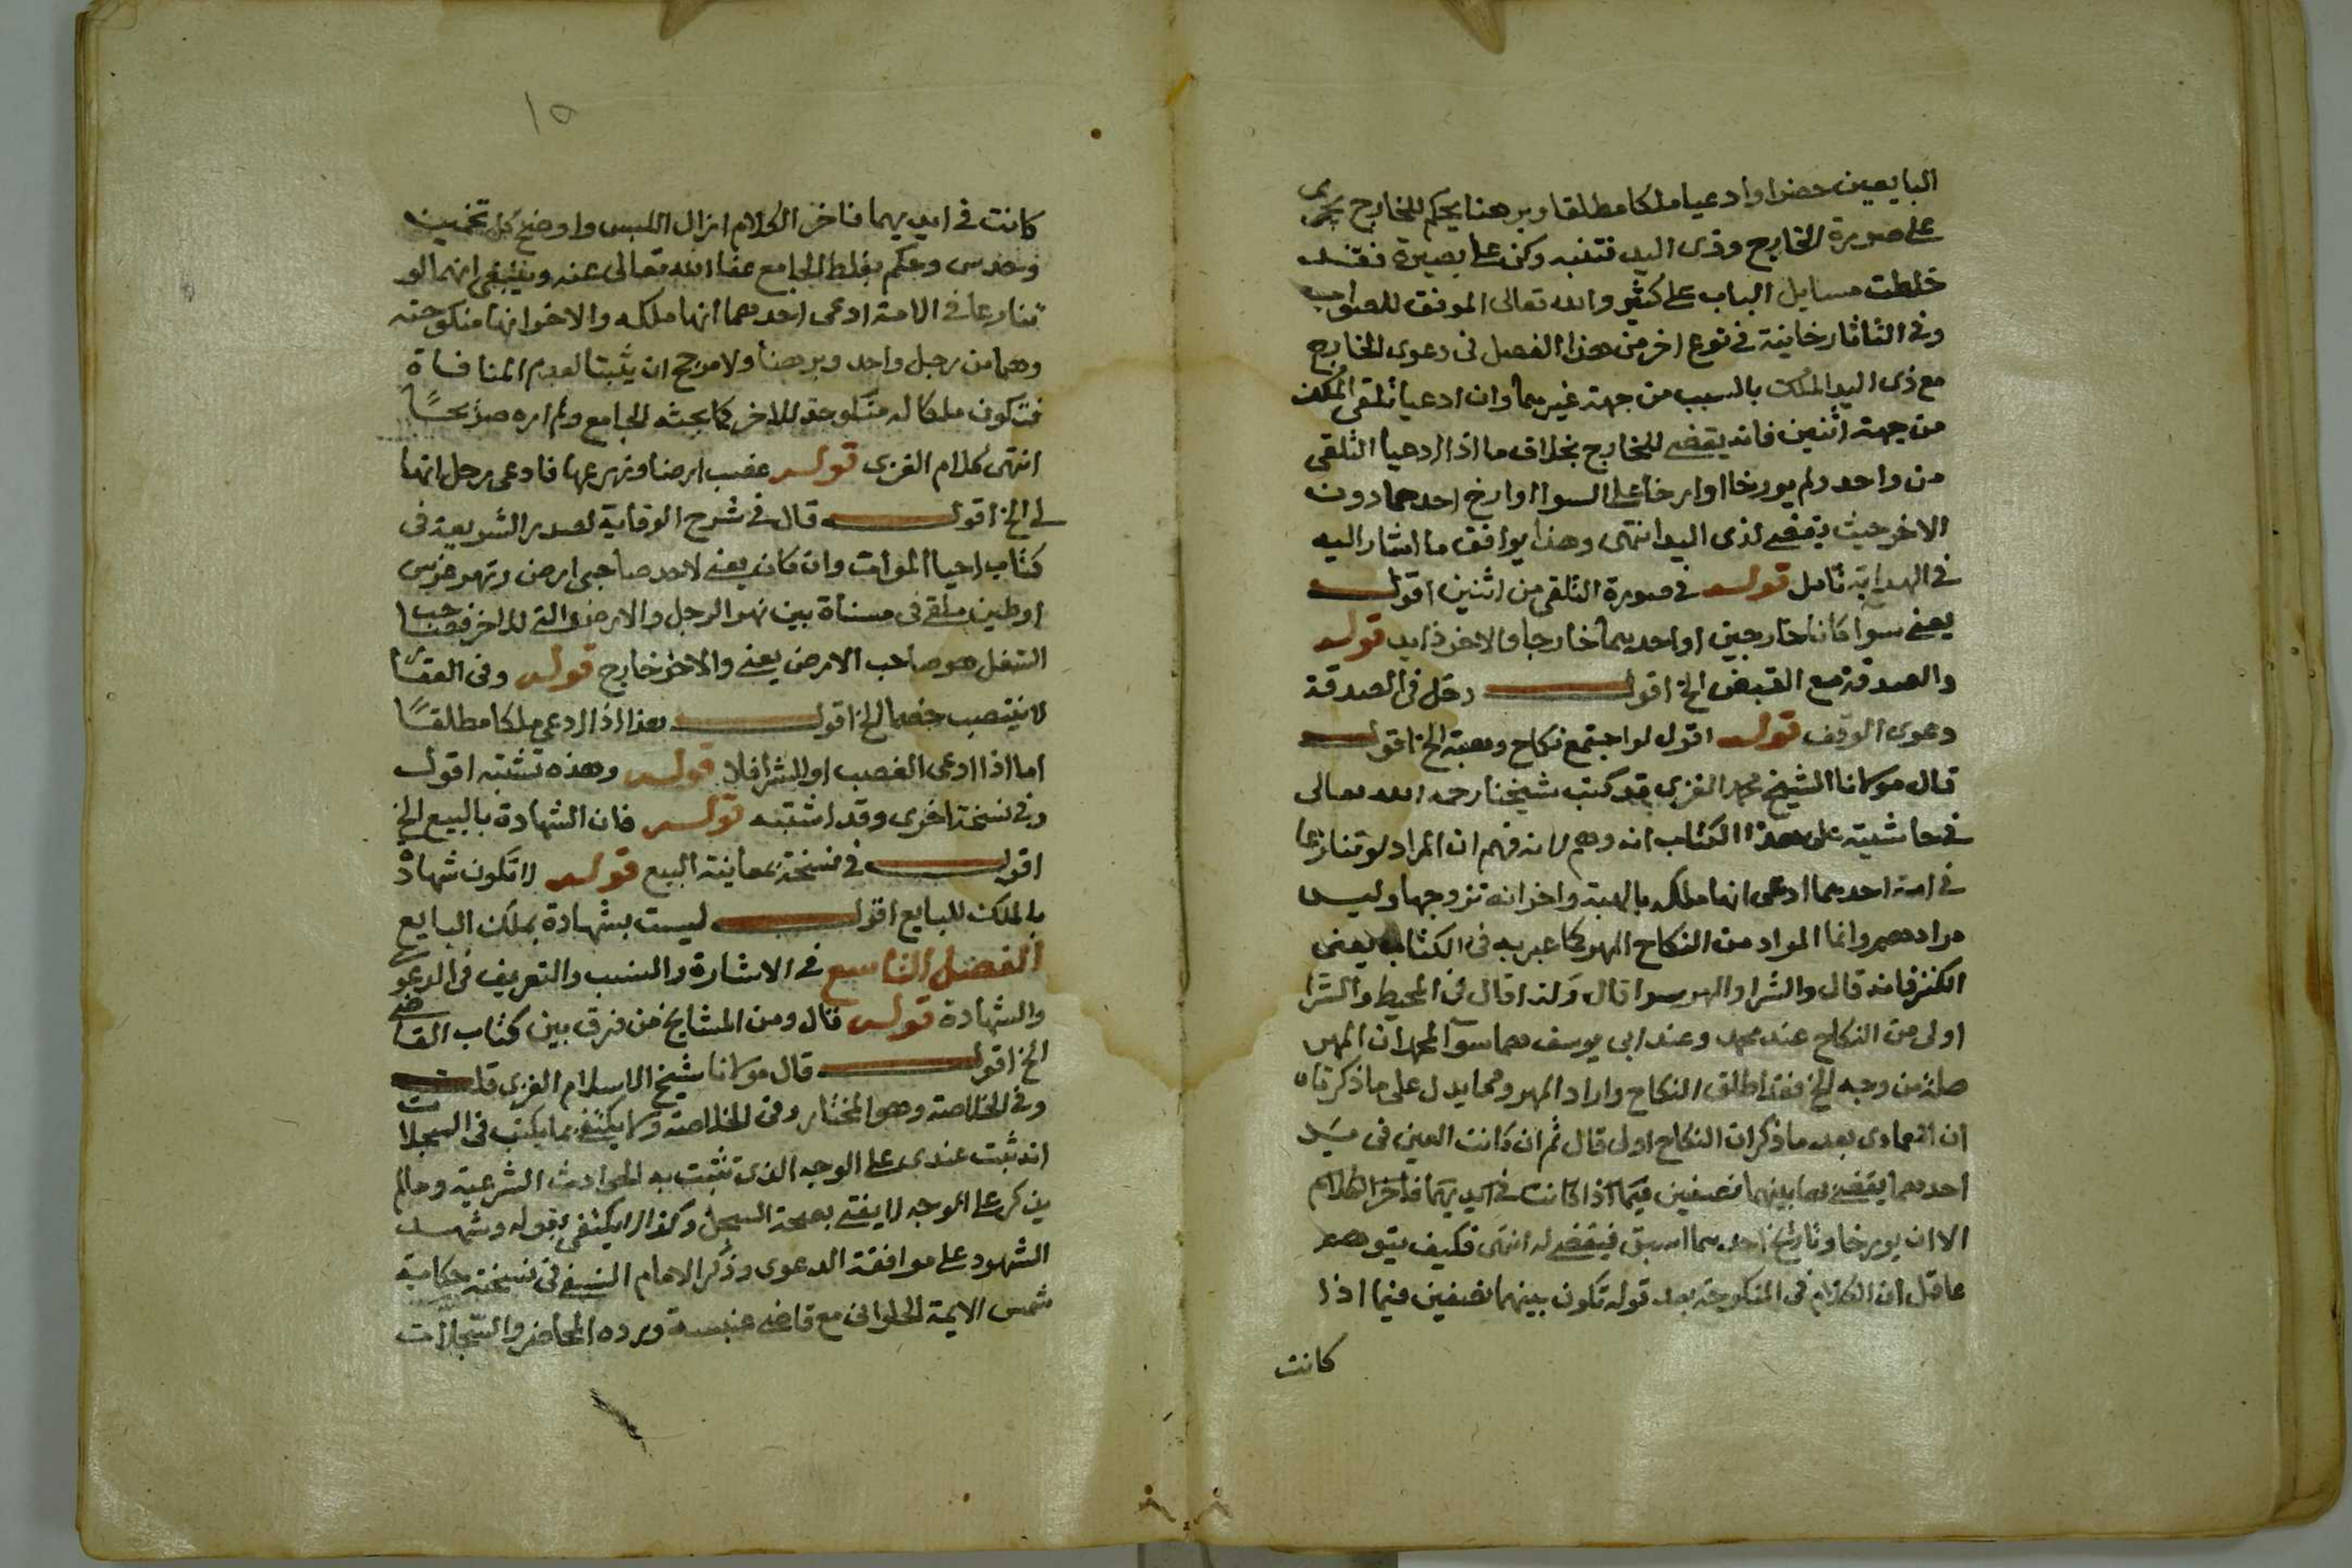 البايعين حضرا وادعيا ملكا مطلقا وبرهنا يحكم للخارج يجرى
على صورة الخارج وذى اليد فتنبه وكن على بصيرة فقد
خلطت مسايل الباب على كثير والله تعالى الموفق للصواب
وفي التاتارخانية في نوع اخر من هذا الفصل فى دعوى الخارج
مع ذى اليد الملك بالسبب من جهة غيرهما وان ادعيا تلقى الملك
من جهة اثنين فانه يقضى للخارج بخلاف ما اذا ادعيا التلقى
من واحد ولم يورخا او ارخا على السوا او ارخ احدهما دون
الاخر حيث يقضى لذى اليد انتهى وهذا يوافق ما اشار اليه
في الهداية تامل قوله في صورة التلقى من اثنين اقول
يعنى سوا كانا خارجين او احدهما خارجا والاخر ذا يد قوله
والصدقة مع القبض الخ اقول دخل فى الصدقة
دعوى الوقف قوله اقول لو اجتمع نكاح وهبة الخ اقول
قال مولانا الشيخ محمد الغزى قد كتب شيخنا رحمه الله تعالى
في حاشيته على هذا الكتاب انه وهم لانه فهم ان المراد لو تنازعا
في امة احدهما ادعى انها ملكه بالهبة واخر انه تزوجها وليس
مرادهم وانما المراد من النكاح المهر كما عبر به فى الكتاب يعنى
الكنز فانه قال والشرا والمهر سوا قال ولذا قال فى المحيط والشرا
اولى من النكاح عند محمد وعند ابى يوسف هما سوآ لمحمد ان المهر
صلة من وجه الخ فقد اطلق النكاح واراد المهر ومما يدل على ما ذكرناه
ان العمادى بعد ما ذكر ان النكاح اولى قال ثم ان كانت العين فى يد
احدهما يقضى بها بينهما نصفين فيما اذا كانت في ايديهما فاخر الكلام
الا ان يورخا وتاريخ احدهما اسبق فيقضى له انتهى فكيف يتوهم
عاقل ان الكلام فى المنكوحة بعد قوله تكون بينهما نصفين فيما اذا
كانت
١٥
كانت في ايديهما فاخر الكلام ازال اللبس واوضح كل تخمين
وحدس وحكم بغلط الجامع عفا الله تعالى عنه وينبغى انهما لو
تنازعا في الامة ادعى احدهما انها ملكه والاخر انها منكوحته
وهما من رجل واحد وبرهنا ولا مرجح ان يثبتا لعدم المنافاة
فتكون ملكا له منكوحة للاخر كما بحثه الجامع ولم اره صريحًا
انتهى كلام الغزى قوله غصب ارضا وزرعها فادعى رجل انها
لى الخ اقول قال في شرح الوقاية لصدر الشريعة فى
كتاب احيا الموات وان كان يعنى لاحد صاحبى ارض ونهر غرس
او طين ملقى فى مسناة بين نهر الرجل والارض التى للاخر فصاحب
الشغل هو صاحب الارض يعنى والاخر خارج قوله وفى العقار
لا ينتصب خصما الخ اقول هذا اذا ادعى ملكا مطلقًا
اما اذا ادعى الغصب او الشرا فلا قوله وهذه تشتبه اقول
وفى نسخة اخرى وقد اشتبه قوله فان الشهادة بالبيع الخ
اقول في نسخة بمعاينة البيع قوله لا تكون شهادة
بالملك للبايع اقول ليست بشهادة بملك البايع
الفصل التاسع في الاشارة والنسب والتعريف فى الدعوى
والشهادة قوله قال ومن المشايخ من فرق بين كتاب القاضى
الخ اقول قال مولانا شيخ الاسلام الغزى قلت
وفى الخلاصة وهو المختار وفى الخلاصة ولا يكتفى بما يكتب فى السجلات
انه ثبت عندى على الوجه الذى تثبت به الحوادث الشرعية ومالم
يذكر على الوجه لا يفتى بصحة السجل وكذا لا يكتفى بقوله وشهد
الشهود على موافقة الدعوى وذكر الامام النسفى فى نسخة حكاية
شمس الايمة الحلوانى مع قاضى عنبسة ورده المحاضر والسجلات